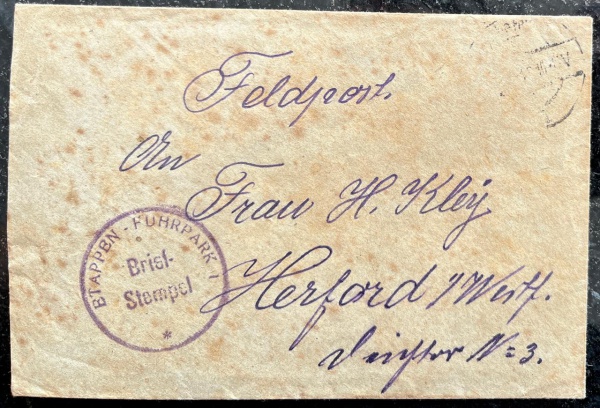 Feldpost.
An
Frau H. Kleÿ
Herford i/Westf.
Deichtor N= 3.
ETAPPEN-FUHRPARK 7
Brief-
Stempel
*